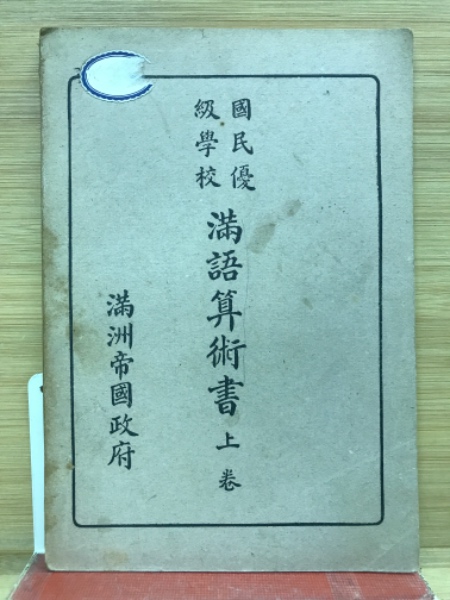 國民優
級學校
滿語算術書 上卷
滿洲帝國政府